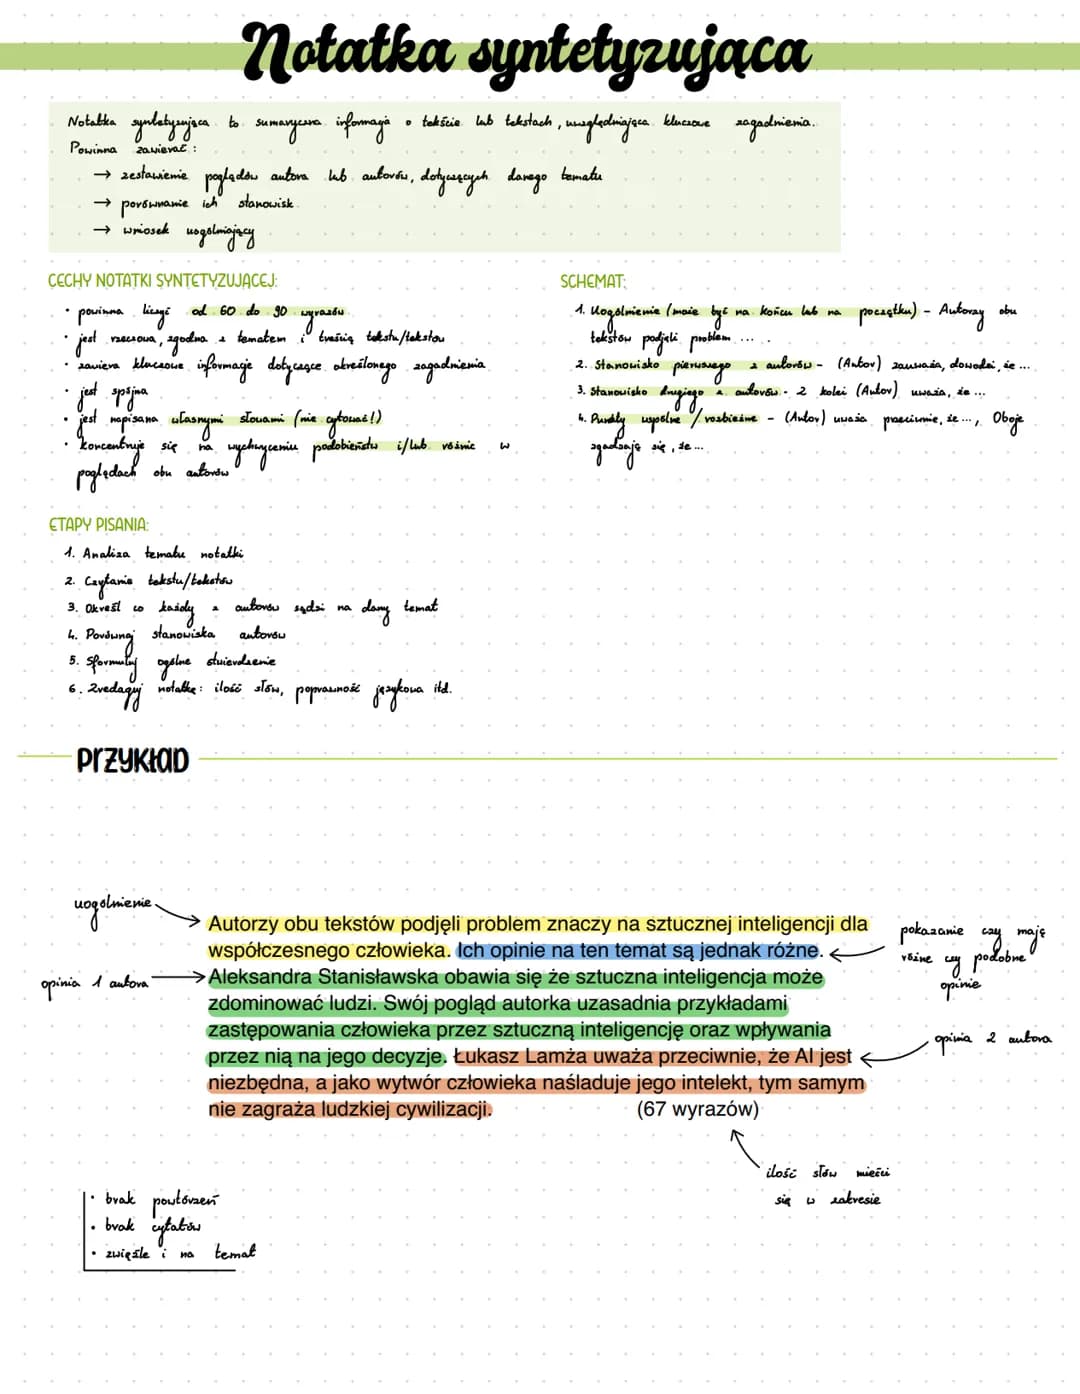 Notatka syntetyzująca
Notatka syntetyzująca to sumaryczna informacja o tekście lub tekstach, uwzględniająca kluczowe zagadnienia.
Powinna zawierać:
→ zestawienie poglądów autora lub autorów, dotyczących danego tematu
→ porównanie ich stanowisk
→ wniosek uogólniający
CECHY NOTATKI SYNTETYZUJĄCEJ:
• powinna liczyć od 60 do 90 wyrazów
• jest rzeczowa, zgodna z tematem i treścią tekstu/tekstów
• zawiera kluczowe informacje dotyczące określonego zagadnienia
• jest spójna
• jest napisana własnymi słowami (nie cytować!)
• koncentruje się na wychwyceniu podobieństw i/lub różnic w
poglądach obu autorów
SCHEMAT:
1. Uogólnienie (może być na końcu lub na początku) – Autorzy obu
tekstów podjęli problem ... .
2. Stanowisko pierwszego z autorów – (Autor) zauważa, dowodzi, że ...
3. Stanowisko drugiego z autorów – Z kolei (Autor) uważa, że ...
4. Punkty wspólne / rozbieżne – (Autor) uważa przeciwnie, że ..., Oboje
zgadzają się, że ...
ETAPY PISANIA:
1. Analiza tematu notatki
2. Czytanie tekstu/tekstów
3. Określ co każdy z autorów sądzi na dany temat
4. Porównaj stanowiska autorów
5. Sformułuj ogólne stwierdzenie
6. Zredaguj notatkę: ilość słów, poprawność językowa itd.
PRZYKŁAD
uogólnienie
Autorzy obu tekstów podjęli problem znaczy na sztucznej inteligencji dla
współczesnego człowieka. Ich opinie na ten temat są jednak różne.
Aleksandra Stanisławska obawia się że sztuczna inteligencja może
zdominować ludzi. Swój pogląd autorka uzasadnia przykładami
zastępowania człowieka przez sztuczną inteligencję oraz wpływania
przez nią na jego decyzje. Łukasz Lamża uważa przeciwnie, że AI jest
niezbędna, a jako wytwór człowieka naśladuje jego intelekt, tym samym
nie zagraża ludzkiej cywilizacji. (67 wyrazów)
pokazanie czy mają
różne czy podobne
opinie
opinia 1 autora
opinia 2 autora
ilość słów mieści
się w zakresie
• brak powtórzeń
• brak cytatów
• zwięźle i na temat